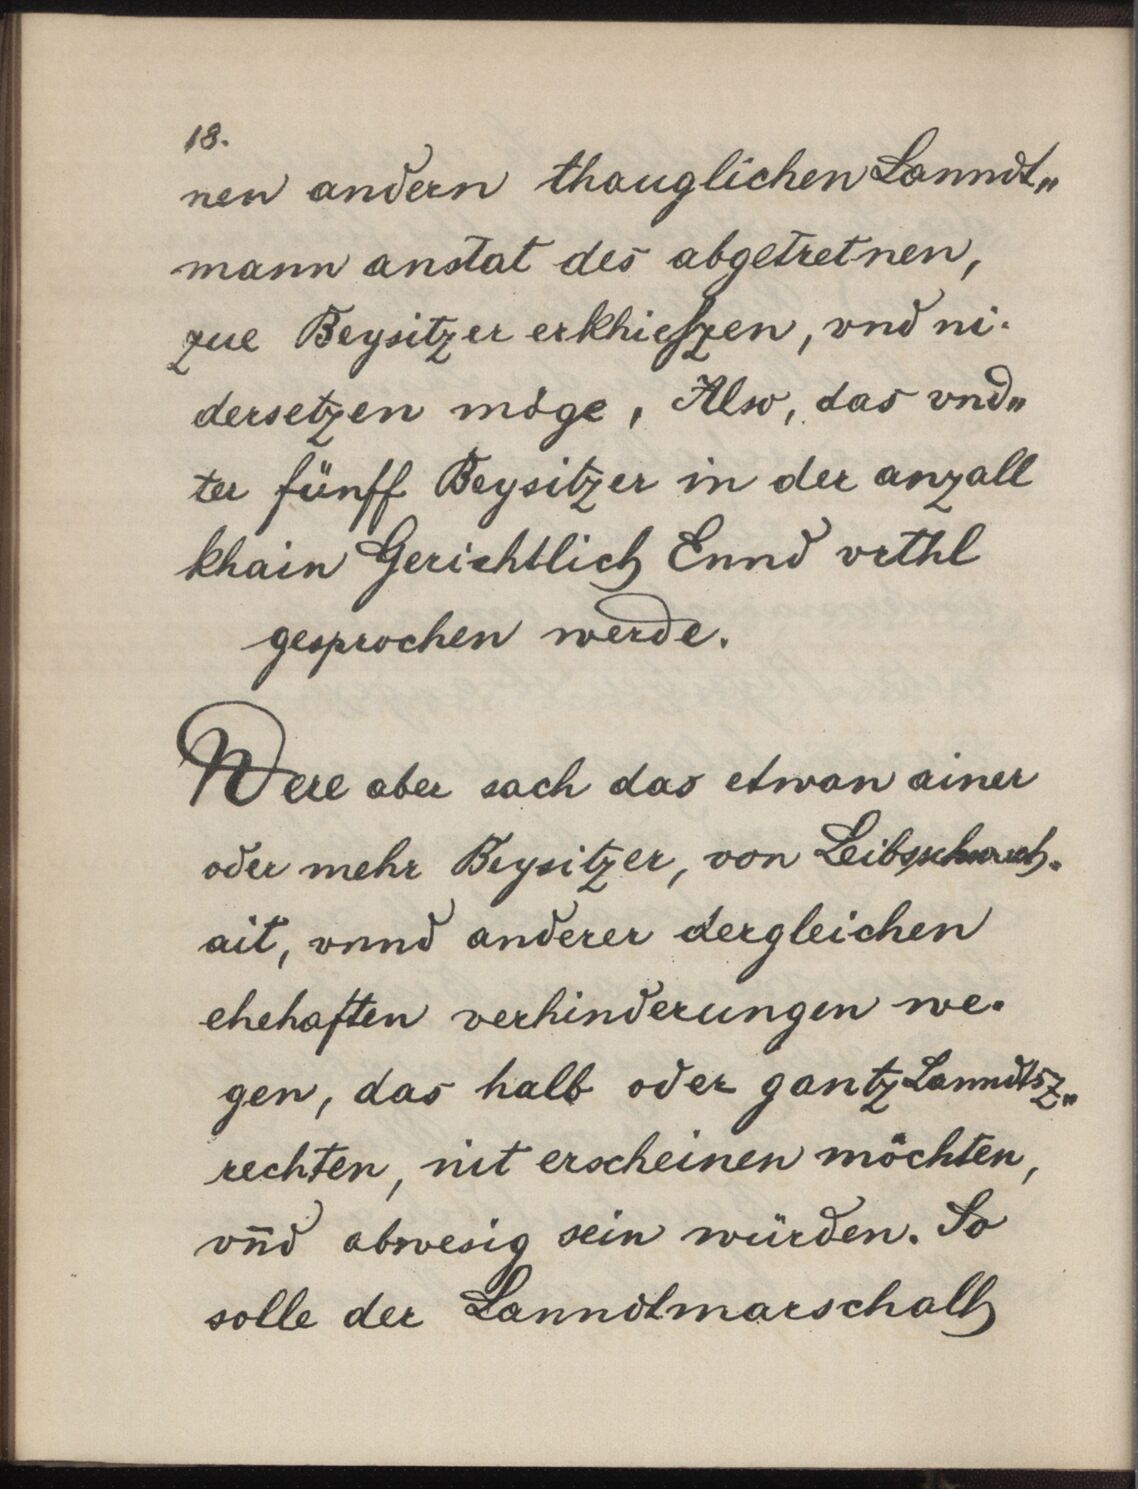 18.
nen andern thauglichen Lanndt„
mann anstat des abgetretnen,
zue Beysitzer erkhieszen, vnd ni-
dersetzen möge, Also, das vnd„
ter fünff Beysitzer in der anzall
khain Gerichtlich Ennd vrthl
gesprochen werde.
Were aber sach das etwan ainer
oder mehr Beysitzer, von Leibschwach-
ait, vnnd anderer dergleichen
ehehaften verhinderungen we-
gen, das halb oder gantz Lanndtsz„
rechten, nit erscheinen möchten,
vn̄d abwesig sein würden. So
solle der Lanndtmarschalh